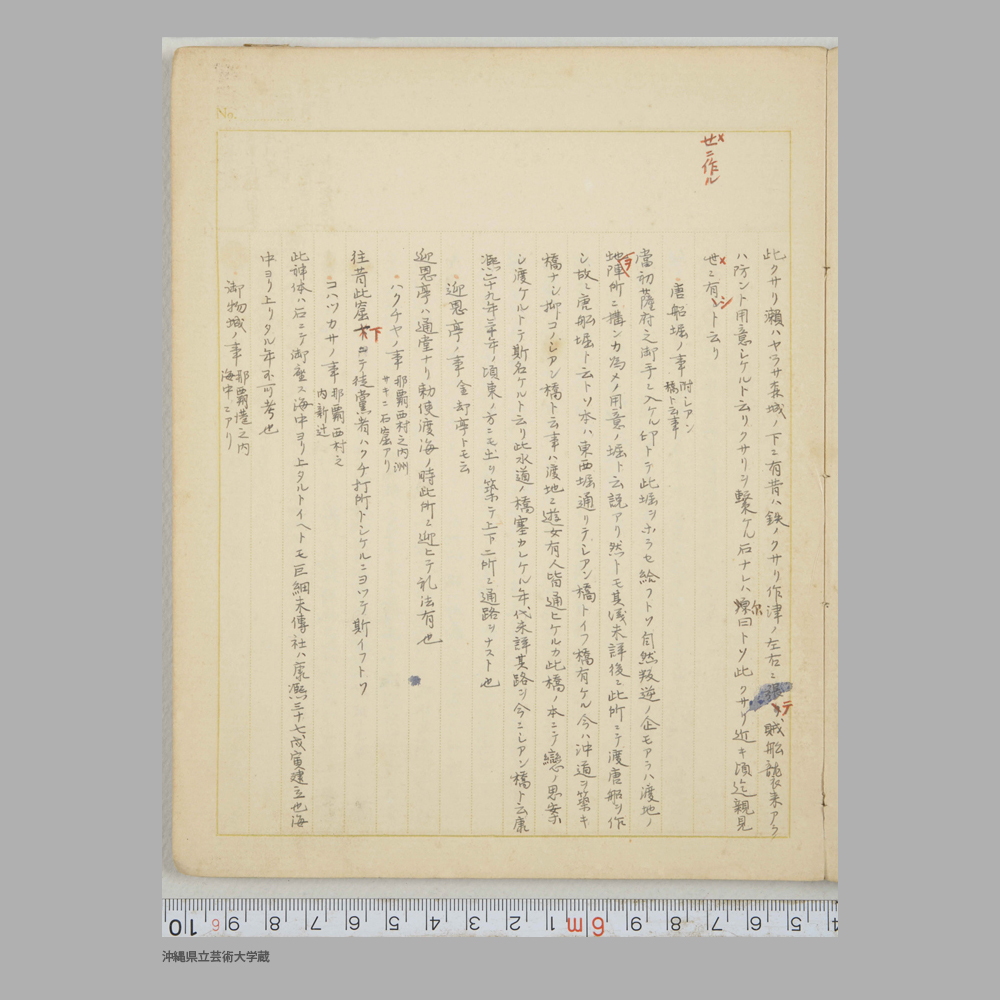 No.
世ニ作ル
此クサリ瀬ハヤラサ森城ノ下ニ有昔ハ鉄ノクサリ作津ノ左右ニ張テ賊船襲来アラ
ハ防ント用意シケルト云リクサリヲ繋ケル石ナレハ爍曰トソ此クサリ近キ頃迄親見
世ニ有シト云リ
唐船堀ノ事 附シアン橋ト云事
當初薩府之御手ニ入ケル印トテ此堀ヲホラセ給フトソ自然叛逆ノ企モアラハ渡地ノ
地ヲ陣所ニ構ンカ為メノ用意ノ堀ト云説アリ然トモ其儀未詳後ニ此所ニテ渡唐船ヲ作
シ故ニ唐船堀ト云トソ水ハ東西堀通リテシアン橋トイフ橋有ケル今ハ沖道ヲ築キ
橋ナシ抑コノシアン橋ト云事ハ渡地ニ遊女有人皆通ヒケルカ此橋ノ本ニテ戀ノ思案
シ渡ケルトテ斯名ケルト云リ此水道ノ橋塞カレケル年代未詳其路ヲ今ニシアン橋ト云康
熙二十九年三十年ノ頃東ノ方ニモ土ヲ築テ上下二所ニ通路ヲナスト也
迎恩亭ノ事 金却亭トモ云
迎恩亭ハ通堂ナリ勅使渡海ノ時此所ニ迎ヒテ礼法有也
ハクチヤノ事 那覇西村之内洲サキニ石窟アリ
往昔此窟下ニテ徒黨者ハクチ打所トシケルニヨツテ斯イフトソ
コハツカサノ事 那覇西村之内新辻
此神体ハ石ニテ御座ス海中ヨリ上タルトイヘトモ巨細未傳社ハ康熙三十七戊寅建立也海
中ヨリ上リタル年不可考也
御物城ノ事 那覇港之内海中ニアリ
10 6 9 8 7 6 5 4 3 2 1 6m 9 8 7 6 5 4
沖縄県立芸術大学蔵